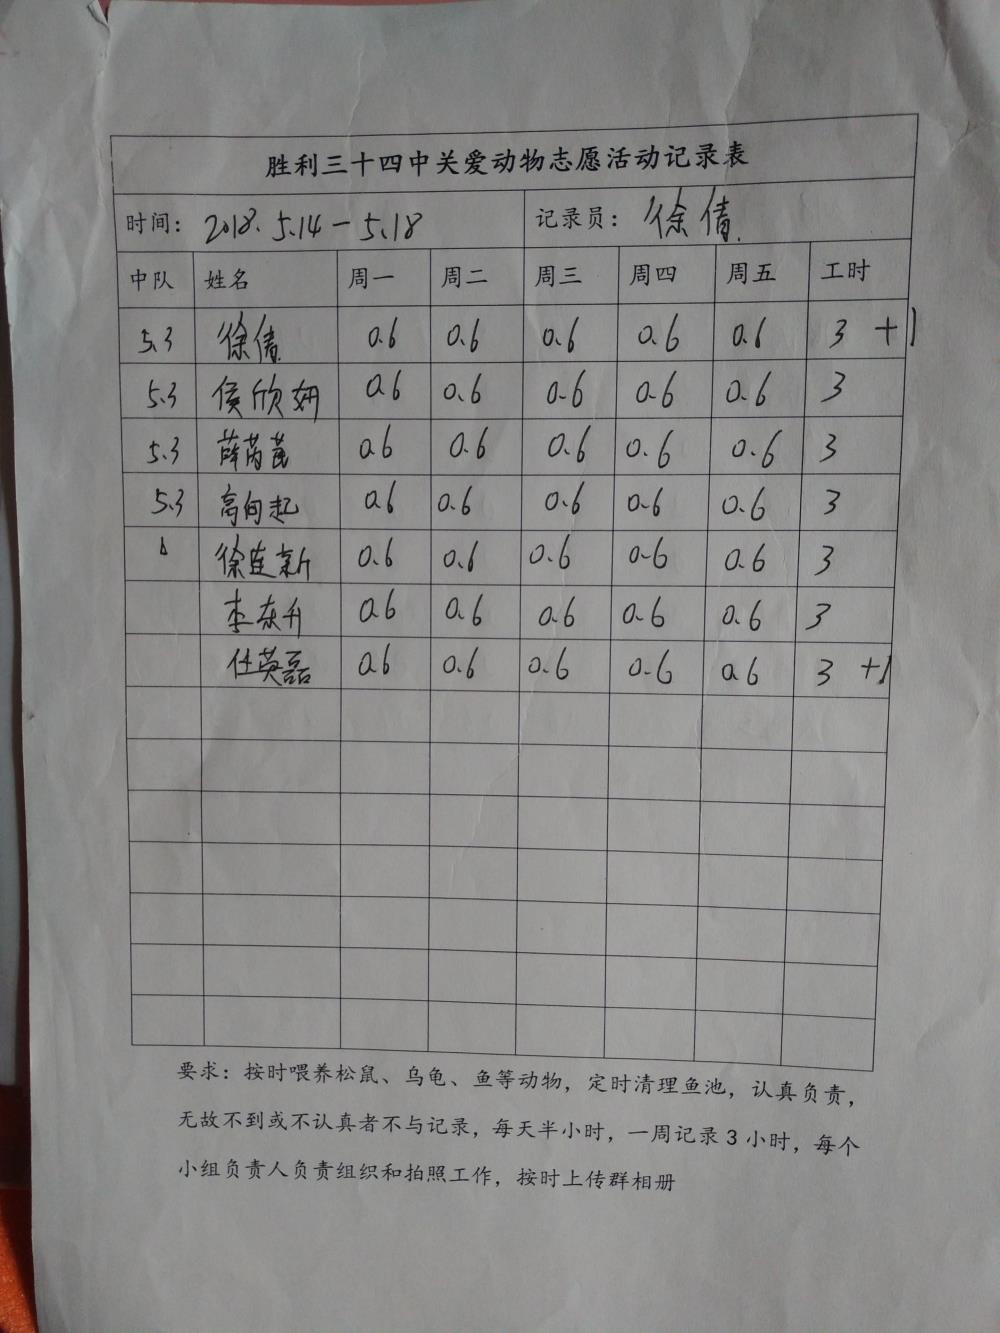 胜利三十四中关爱动物志愿活动记录表
时间: 2018.5.14-5.18 记录员: 徐倩.
中队 姓名 周一 周二 周三 周四 周五 工时
5.3 徐倩 0.6 0.6 0.6 0.6 0.6 3 +1
5.3 侯欣妍 0.6 0.6 0.6 0.6 0.6 3
5.3 薛芮 0.6 0.6 0.6 0.6 0.6 3
5.3 高向起 0.6 0.6 0.6 0.6 0.6 3
徐连新 0.6 0.6 0.6 0.6 0.6 3
李东升 0.6 0.6 0.6 0.6 0.6 3
任英磊 0.6 0.6 0.6 0.6 0.6 3 +1
要求: 按时喂养松鼠、乌龟、鱼等动物, 定时清理鱼池, 认真负责,
无故不到或不认真者不与记录, 每天半小时, 一周记录 3 小时, 每个
小组负责人负责组织和拍照工作, 按时上传群相册